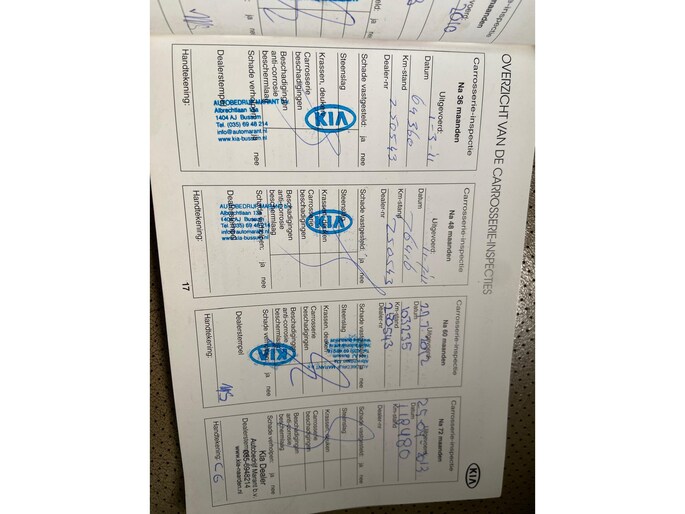 2010
OVERZICHT VAN DE CARROSSERIE-INSPECTIES
Carrosserie-inspectie
Na 36 maanden
Uitgevoerd:
Datum 1-3-11
Km-stand 64360
Dealer-nr 250543
Schade vastgesteld: ja nee
Steenslag
Krassen, deuken
Carrosserie
beschadigingen
Beschadigingen
anti-corrosie
beschermlaag
Schade verholpen: ja nee
Dealerstempel
KIA
AUTOBEDRIJF MARANT B.V.
Albrechtlaan 13a
1404 AJ Bussum
Tel. (035) 69 48 214
info@automarant.nl
www.kia-bussum.nl
Handtekening:
Carrosserie-inspectie
Na 48 maanden
Uitgevoerd:
Datum
Km-stand
Dealer-nr 250543
Schade vastgesteld: ja nee
Steenslag
Krassen, deuken
Carrosserie
beschadigingen
Beschadigingen
anti-corrosie
beschermlaag
Schade verholpen: ja nee
Dealerstempel
KIA
AUTOBEDRIJF MARANT B.V.
Albrechtlaan 13a
1404 AJ Bussum
Tel. (035) 69 48 214
info@automarant.nl
www.kia-bussum.nl
Handtekening:
17
Carrosserie-inspectie
Na 60 maanden
Uitgevoerd:
Datum
Km-stand 103235
Dealer-nr 250543
Schade vastgesteld: ja nee
Steenslag
Krassen, deuken
Carrosserie
beschadigingen
Beschadigingen
anti-corrosie
beschermlaag
Schade verholpen: ja nee
Dealerstempel
KIA
Handtekening:
KIA
Carrosserie-inspectie
Na 72 maanden
Uitgevoerd:
Datum
Km-stand
Dealer-nr
Schade vastgesteld: ja nee
Steenslag
Krassen, deuken
Carrosserie
beschadigingen
Beschadigingen
anti-corrosie
beschermlaag
Schade verholpen: ja nee
Kia Dealer
Autobedrijf Marant b.v.
035-6948214
www.kia-naarden.nl
Handtekening: CG